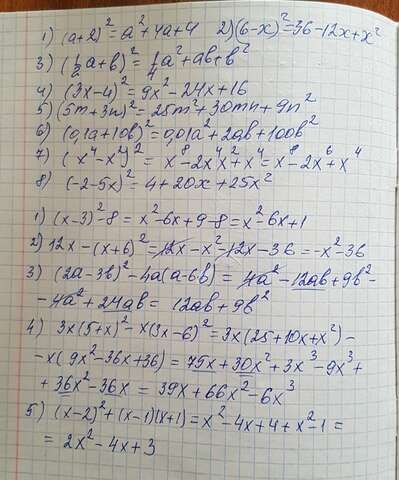 1) (a+2)² = a²+4a+4   2) (6-x)² = 36-12x+x²
3) (1/2 a+b)² = 1/4 a²+ab+b²
4) (3x-4)² = 9x²-24x+16
5) (5m+3n)² = 25m²+30mn+9n²
6) (0,1a+10b)² = 0,01a²+2ab+100b²
7) (x⁴-x²)² = x⁸-2x⁴x²+x⁴ = x⁸-2x⁶+x⁴
8) (-2-5x)² = 4+20x+25x²
1) (x-3)²-8 = x²-6x+9-8 = x²-6x+1
2) 12x-(x+6)² = 12x-x²-12x-36 = -x²-36
3) (2a-3b)²-4a(a-6b) = 4a²-12ab+9b²-
-4a²+24ab = 12ab+9b²
4) 3x(5+x)²-x(3x-6)² = 3x(25+10x+x²)-
-x(9x²-36x+36) = 75x+30x²+3x³-9x³+
+36x²-36x = 39x+66x²-6x³
5) (x-2)²+(x-1)(x+1) = x²-4x+4+x²-1 =
= 2x²-4x+3